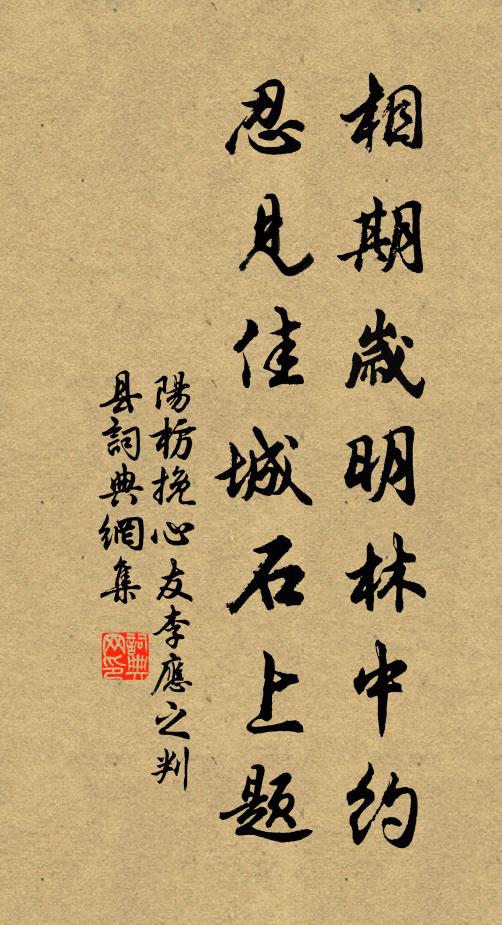 相期歲明林中約
忍見佳城石上題
陽枋挽心友李應之判
县詞典網集
詞典网印